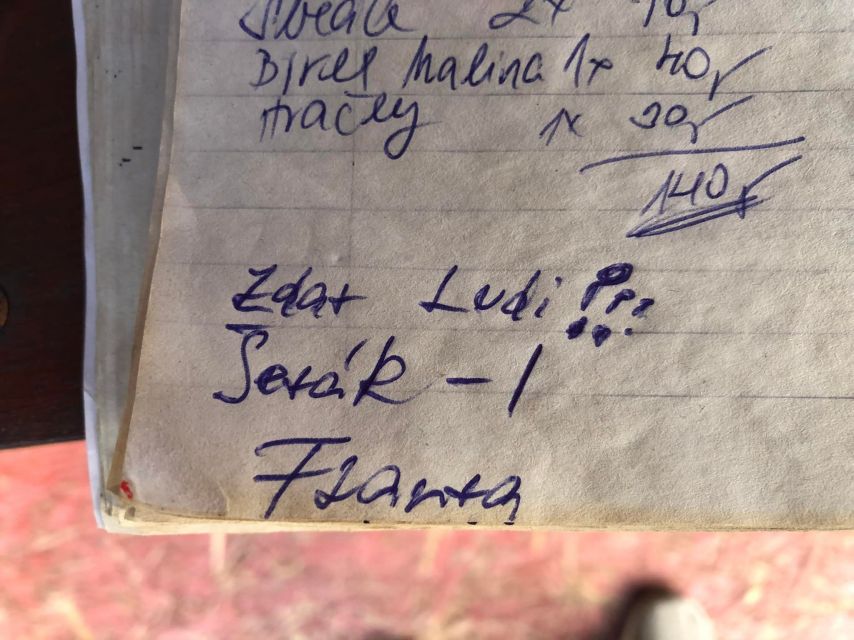 2x 70,-
Birell Malina 1x 40,-
1x 30,-
140,-
Zdar Ludi
Šerák - 1
Franta